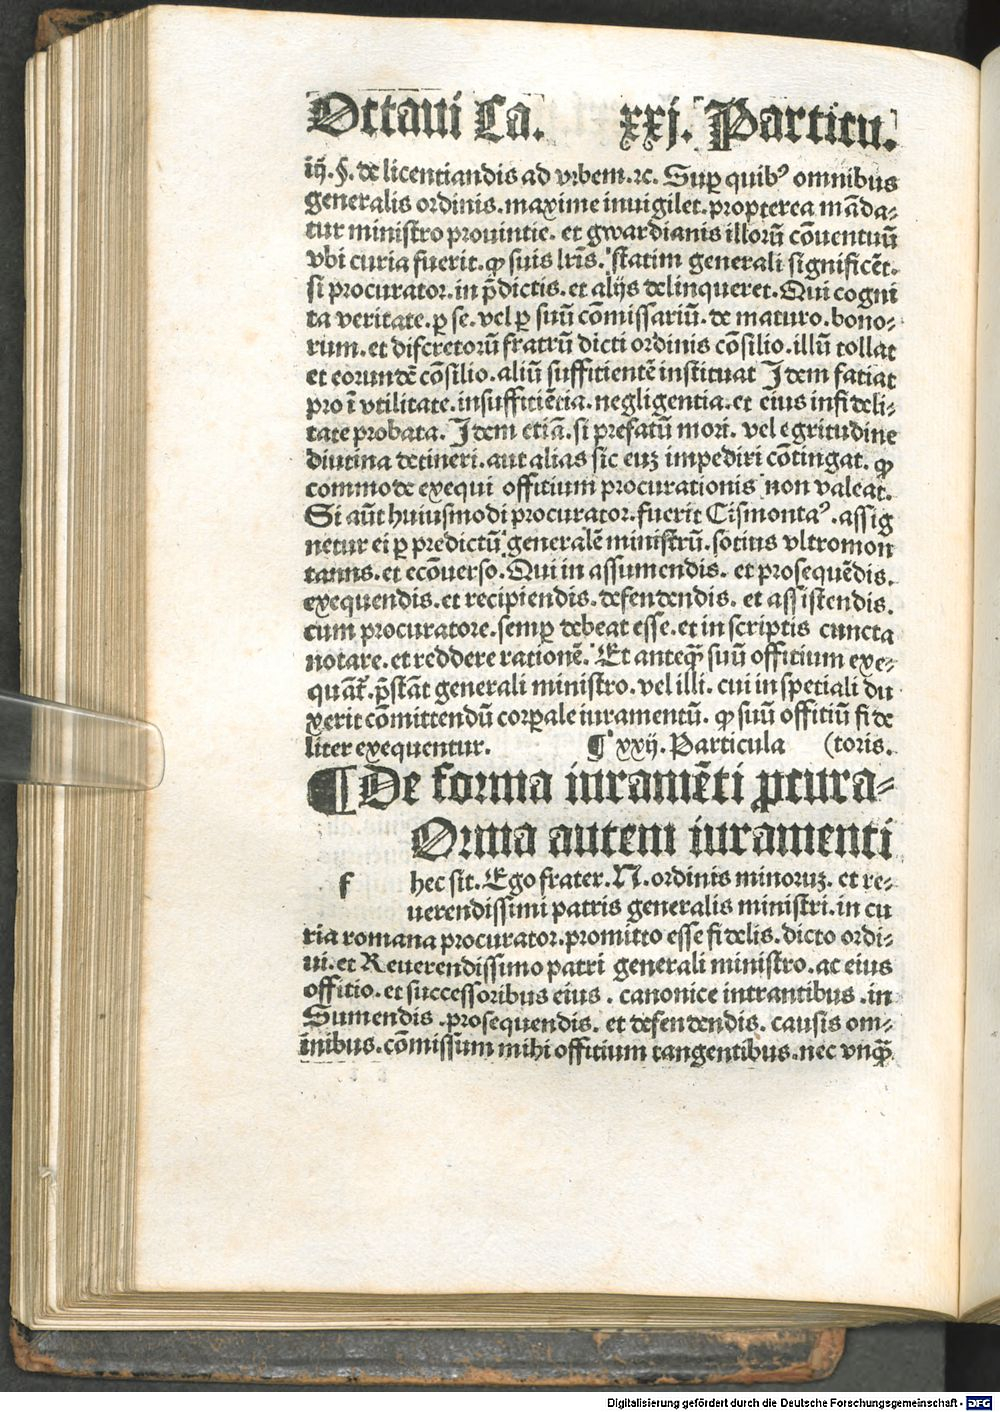 Octaui Ca. xxj. Particu.
iij. §. de licentiandis ad vrbem. ꝛc. Suꝑ quibꝰ omnibus
generalis ordinis. maxime inuigilet. propterea mãda⸗
tur ministro prouintie. et gwardianis illorũ cõuentuũ
vbi curia fuerit. ꝙ suis lr̃is. statim generali significẽt.
si procurator. in p̃dictis. et alijs delinqueret. Qui cogni
ta veritate. ꝑ se. vel ꝑ suũ cõmissariũ. de maturo. bono⸗
rium. et discretorũ fratrũ dicti ordinis cõsilio. illũ tollat
et eorundẽ cõsilio. aliũ suffitientẽ instituat Idem fatiat
pro ĩ vtilitate. insuffitiẽtia. negligentia. et eius infideli⸗
tate probata. Idem etiã. si prefatũ mori. vel egritudine
diutina detineri. aut alias sic euꝫ impediri cõtingat. ꝙ
commode exequi offitium procurationis non valeat.
Si aũt huiusmodi procurator. fuerit Cismontaꝰ. assig
netur ei ꝑ predictũ generalẽ ministrũ. sotius vltromon
tanns. et ecõuerso. Qui in assumendis. et prosequẽdis.
exequendis. et recipiendis. defendendis. et assistendis.
cum procuratore. semꝑ debeat esse. et in scriptis cuncta
notare. et reddere rationẽ. Et anteq̃ suũ offitium exe⸗
quãt̃. p̃stãt generali ministro. vel illi. cui in spetiali du
xerit cõmittendũ corꝑale iuramentũ. ꝙ suũ offitiũ fide
liter exequentur. ¶ xxij. Particula (toris.
¶ De forma iuramẽti ꝓcura⸗
Orma autem iuramenti
f hec sit. Ego frater. N. ordinis minoruꝫ. et re⸗
uerendissimi patris generalis ministri. in cu
ria romana procurator. promitto esse fidelis. dicto ordi⸗
ui. et Reuerendissimo patri generali ministro. ac eius
offitio. et successoribus eius. canonice intrantibus. in
Sumendis. prosequendis. et defendendis. causis om⸗
inibus. cõmissum mihi offitium tangentibus. nec vnq̃
Digitalisierung gefördert durch die Deutsche Forschungsgemeinschaft - DFG